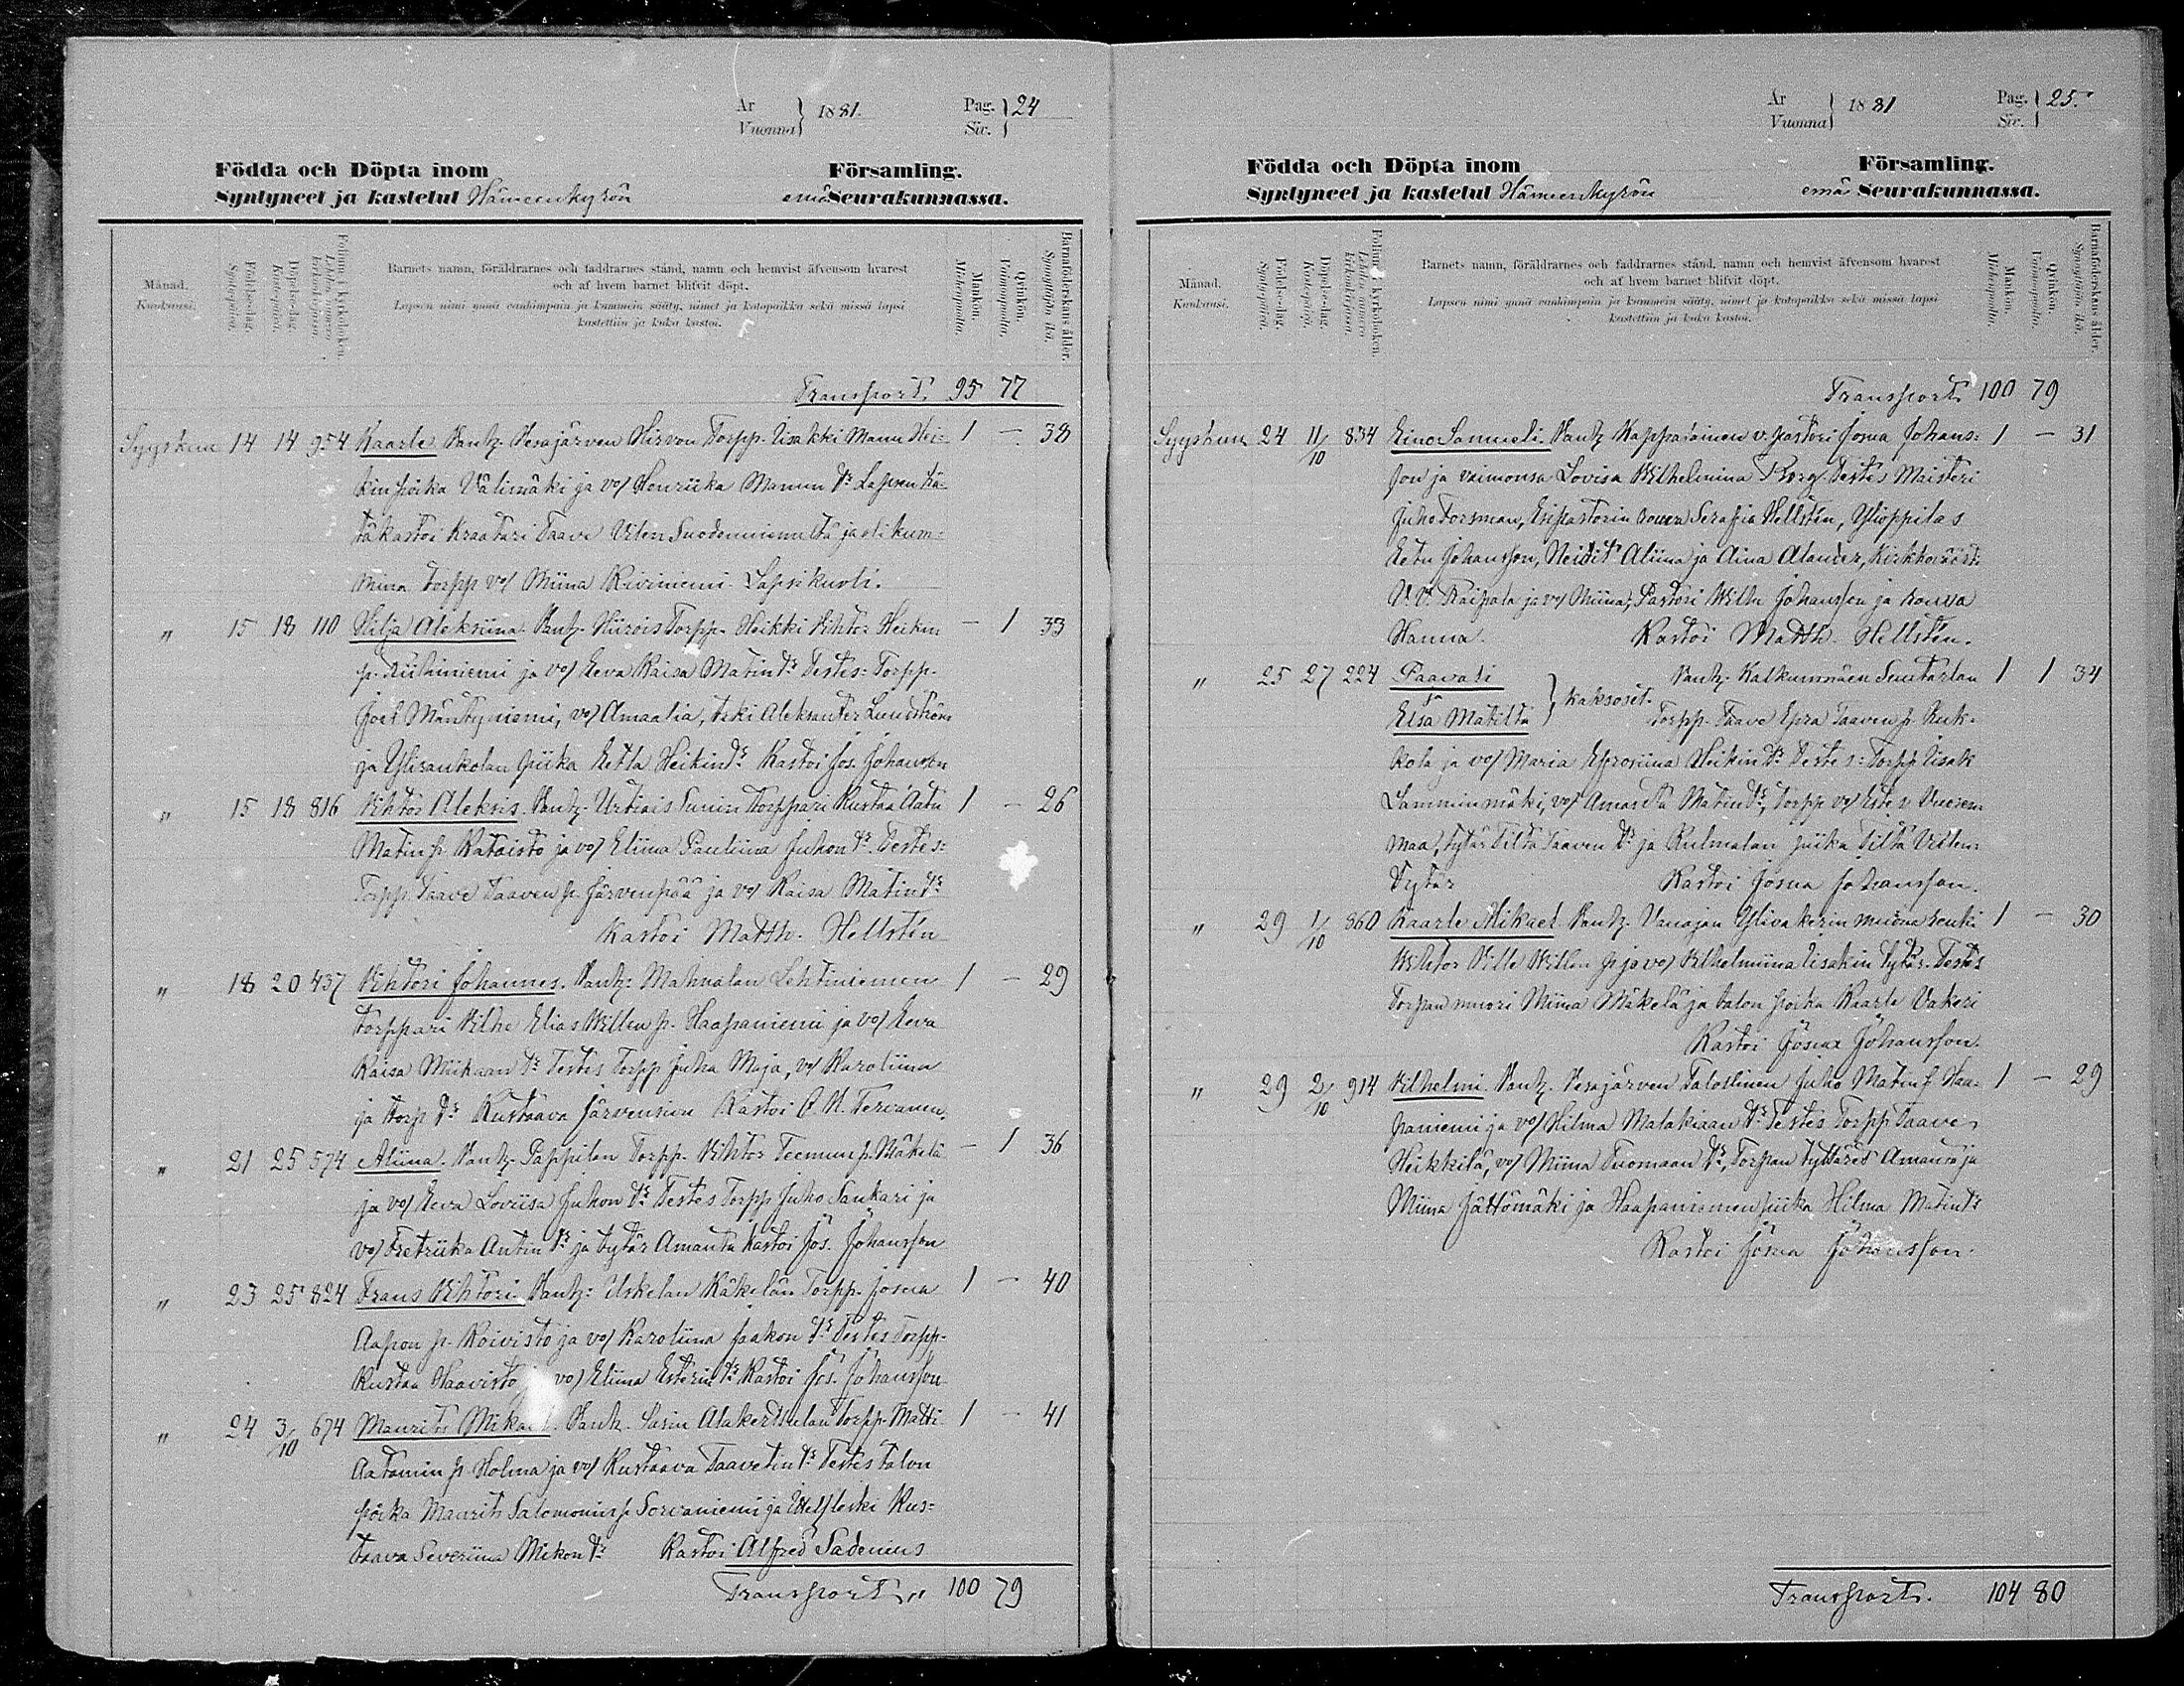 År
Vuonna } 1881.
Pag.
Siv. } 24
Födda och Döpta inom Församling.
Syntyneet ja kastetut Hämeenkyrön emä Seurakunnassa.
Månad.
Kuukausi.
Födelse-dag.
Syntopäivä.
Döpelse-dag.
Kastepäivä.
Folium i kyrkoboken.
Lehden numero kirkonkirjassa.
Barnets namn, föräldrarnes och faddrarnes stånd, namn och hemvist äfvensom hvarest
och af hvem barnet blifvit döpt.
Lapsen nimi ynnä vanhimpain ja kummein sääty, nimet ja kotopaikka sekä missä lapsi
kastettiin ja kuka kastoi.
Mankön.
Miehenpuolia.
Qvinkön.
Vaimonpuolia.
Barnaföderskans ålder.
Synnyttäjän ikä.
Transport. 95 77
Syyskuu 14 14 954 Kaarle. Vanh. Vesajärven Hirvon Torpp. Iisakki Manu Hei= 1 — 38
kin poika Välimäki ja vo/ Henriika Manun tr Lapsen hä-
täkastoi Kraatari Taave Vilen Suodenniemeltä ja oli kum=
mina torpp vo/ Miina Riviniemi. Lapsi kuoli.
" 15 18 110 Hilja Aleksiina. Vanh. Hiirois Torpp. Heikki Vihtor Heikin — 1 33
p. Riihiniemi ja vo/ Eeva Kaisa Matin tr Testes: Torpp.
Joel Mäntyniemi, vo/ Amaalia, teki Aleksanter Lundström
ja Ylisaukolan piika Eetla Heikin tr Kastoi Jos. Johansson
" 15 18 816 Vihtor Aleksis. Vanh. Urtiais Punin torppari Kustaa Aatu 1 — 26
Matin p. Rataisto ja vo/ Eliina Pauliina Juhon tr. Testes:
Torpp. Taave Taaven p. Järvenpää ja vo/ Kaisa Matin tr
Kastoi Matth. Hellstén
" 18 20 437 Vihtori Johannes. Vanh: Mahnalan Lehtiniemen 1 — 29
torppari Vilhe Elias Villen p. Haapaniemi ja vo/ Eeva
Kaisa Miikaan tr Testes Torpp Juha Maja, vo/ Karoliina
ja torp tr Kustaava Järvensivu Kastoi A. N. Tervanen.
" 21 25 574 Aliina. Vanh. Pappilan Torpp. Vihtor Teemun p. Mäkelä — 1 36
ja vo/ Eeva Loviisa Juhon tr Testes Torpp Juho Sankari ja
vo/ Fretriika Antin tr ja tytär Amanta Kastoi Jos. Johansson
" 23 25 824 Frans Vihtori. Vanh: Uskelan Käkelän Torpp. Josua 1 — 40
Aapon p. Koivisto ja vo/ Karoliina Jaakon tr Testes Torpp.
Kustaa Haavisto vo/ Eliina Esterin tr Kastoi Jos. Johansson
" 24 3/10 674 Maurits Mikael. Vanh. Sarin Alakertulan Torpp. Matti 1 — 41
Aatamin p. Holma ja vo/ Kustaava Taavetin tr Testes talon
poika Maurits Salomonin p Sorvaniemi ja Leski Kus=
taava Severiina Mikon tr Kastoi Alfred Sadenius
Transport " 100 79
År
Vuonna } 1881
Pag.
Siv. } 25.
Födda och Döpta inom Församling.
Syntyneet ja kastetut Hämeenkyrön emä Seurakunnassa.
Månad.
Kuukausi.
Födelse-dag.
Syntopäivä.
Döpelse-dag.
Kastepäivä.
Folium i kyrkoboken.
Lehden numero kirkonkirjassa.
Barnets namn, föräldrarnes och faddrarnes stånd, namn och hemvist äfvensom hvarest
och af hvem barnet blifvit döpt.
Lapsen nimi ynnä vanhimpain ja kummein sääty, nimet ja kotopaikka sekä missä lapsi
kastettiin ja kuka kastoi.
Mankön.
Miehenpuolia.
Qvinkön.
Vaimonpuolia.
Barnaföderskans ålder.
Synnyttäjän ikä.
Transport 100 79
Syyskuu 24 11/10 834 Eino Samueli. Vanh Kappalainen v. pastori Josua Johans= 1 — 31
son ja vaimonsa Lovisa Vilhelmina Borg. Testes Maisteri
Juho Forsman, Esipastorin rouva Serafia Hellstén, Ylioppilas
Eetu Johansson, Neidit Aliina ja Aina Alander, Kirkkoväärt.
V. V. Raipala ja vo/ Miina, Pastori Wilh. Johansson ja rouva
Hanna. Kastoi Matth. Hellstén.
" 25 27 224 Paavali Vanh. Kalkunmäen Simtarlan 1 1 34
Elsa Matilta } Kaksoset. Torpp. Taave Epra Taaven p. Kuk-
kola ja vo/ Maria Efrosiina Heikin tr Testes: Torpp Iisak
Lamminmäki, vo/ Amanta Matin tr, Torpp vo/ Vuoren=
maa, tytär Tilta Taaven tr ja Kulmalan piika Tilta Villen=
tytär Kastoi Josua Johansson.
" 29 1/10 860 Kaarle Mikael. Vanh. Vanajan Ylivakerin muona renki 1 — 30
Vihtor Ville Villen p ja vo/ Vilhelmiina Iisakin tytär. Testes
Torpan muori Miina Mäkelä ja talon poika Kaarle Vakeri
Kastoi Josua Johansson.
" 29 2/10 914 Vilhelmi. Vanh. Vesajärven Talollinen Juho Matin p. Haa- 1 — 29
paniemi ja vo/ Hilma Malakiaan tr Testes Torpp Taave
Heikkilä, vo/ Miina Tuomaan tr, Torpan tyttäret Amanta ja
Miina Jättömäki ja Haapaniemen piika Hilma Matin tr
Kastoi Josua Johansson.
Transport. 104 80